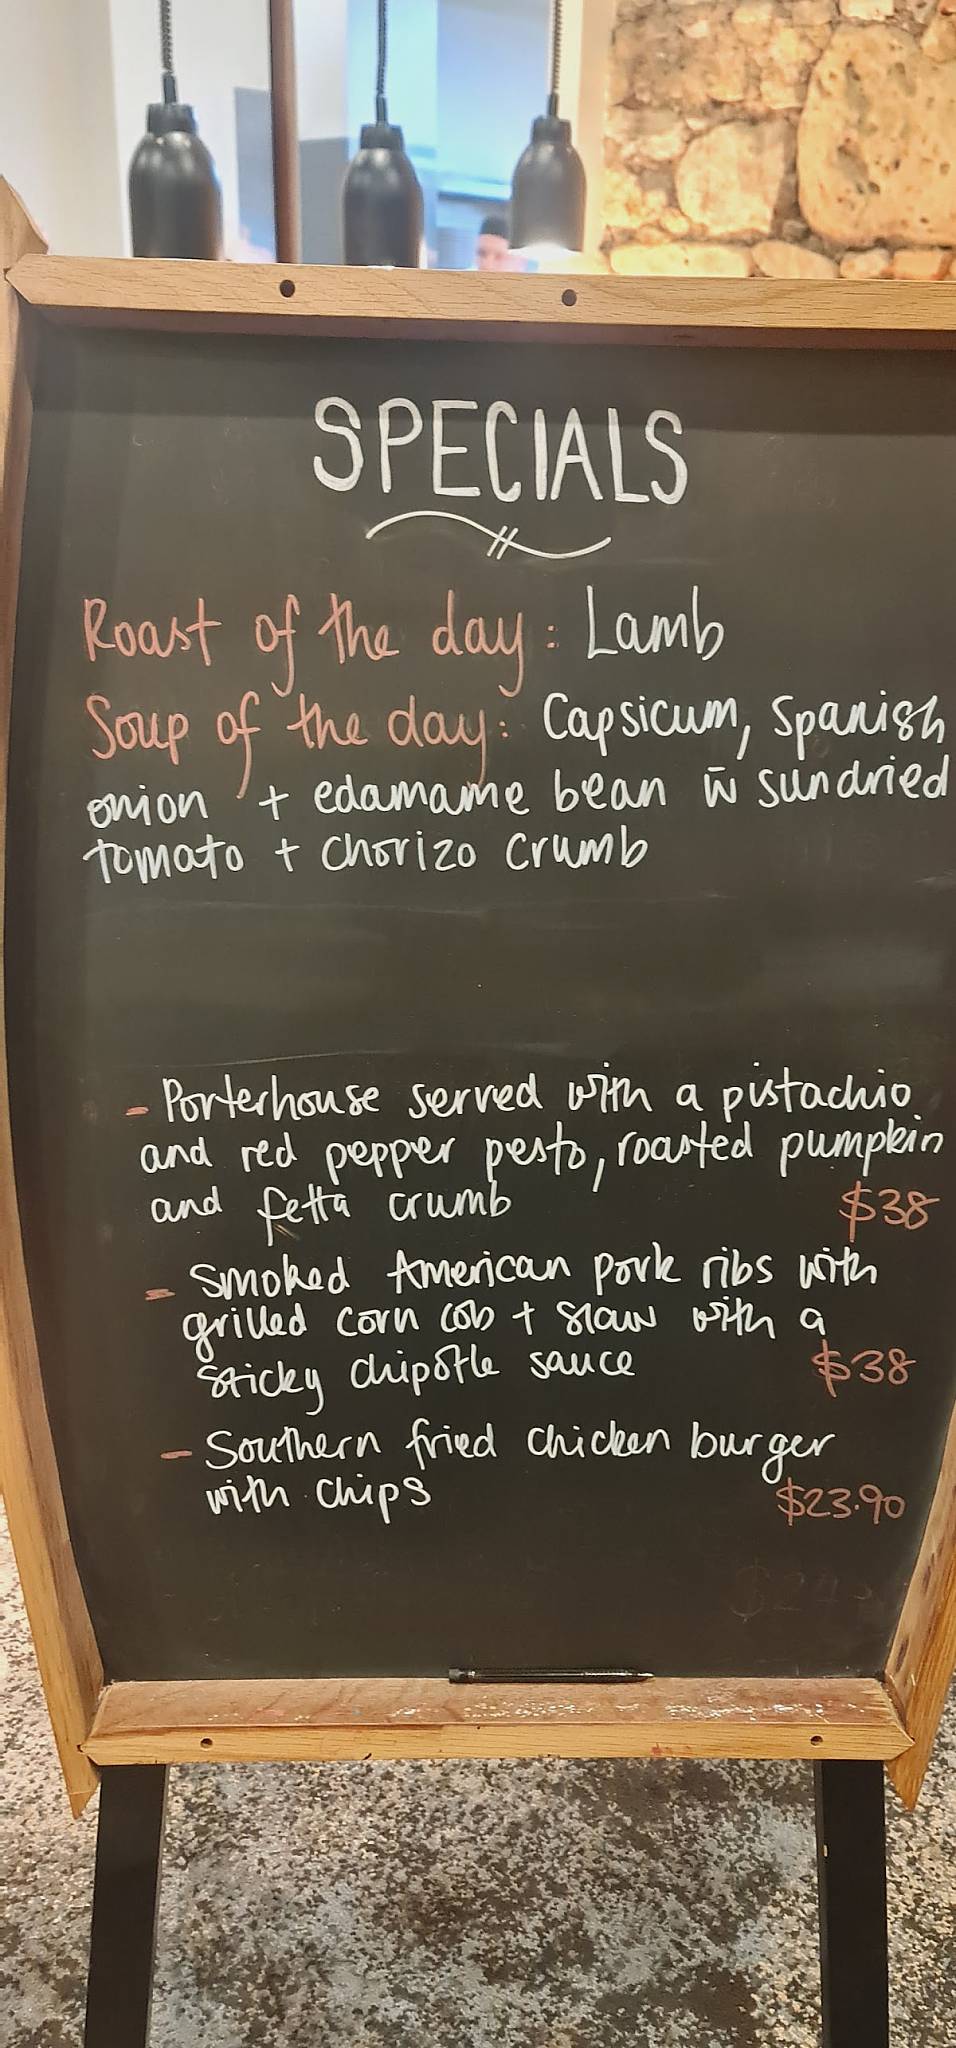 SPECIALS
Roast of the day: Lamb
Soup of the day: Capsicum, Spanish
onion + edamame bean w̄ sundried
tomato + chorizo crumb
- Porterhouse served with a pistachio
and red pepper pesto, roasted pumpkin
and fetta crumb $38
- Smoked American pork ribs with
grilled corn cob + slaw with a
sticky chipotle sauce $38
- Southern fried chicken burger
with chips $23.90